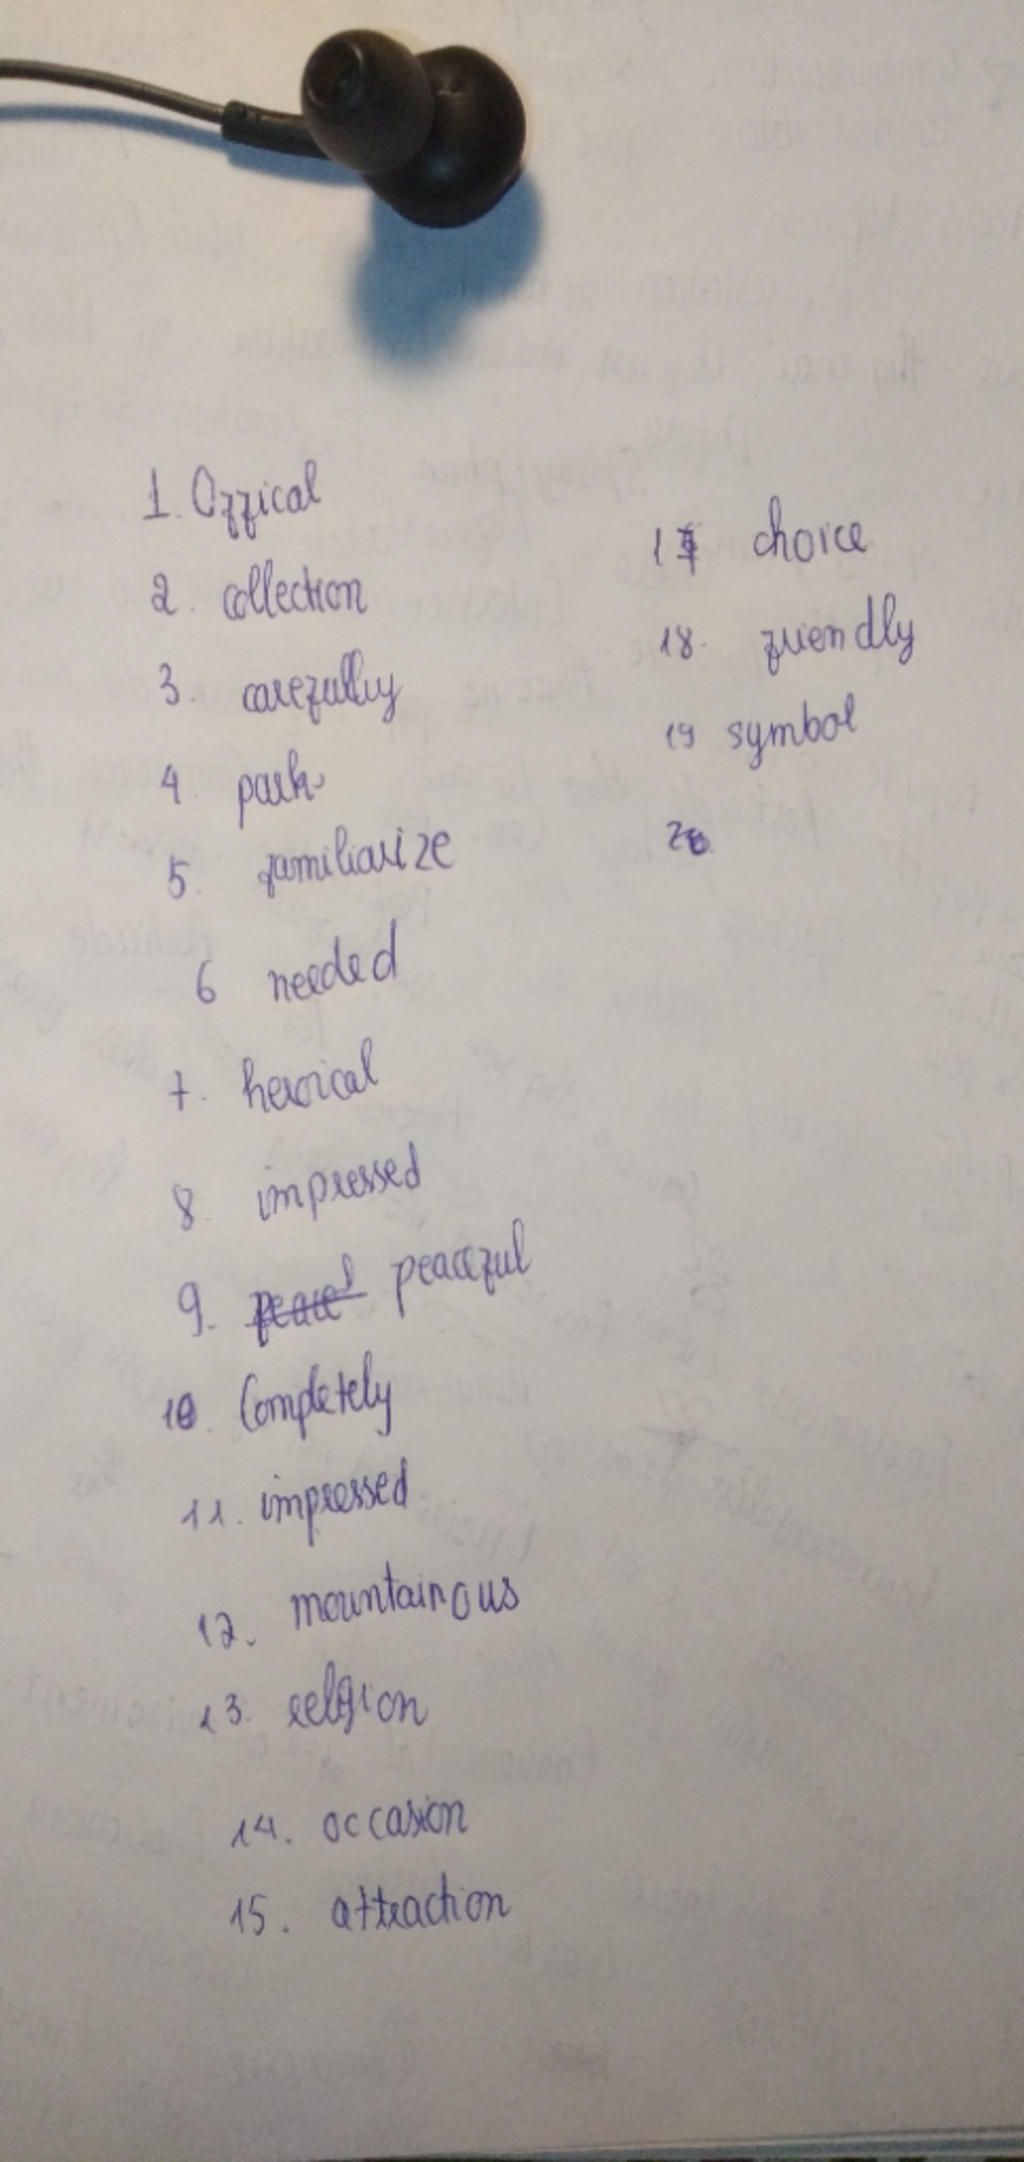 1. Offical
2. collection
3. carefully
4. park
5. familiarize
6 needed
7. heroical
8. impressed
9. peaceful
10. Completely
11. impressed
12. mountainous
13. relgion
14. occasion
15. attraction
17 choice
18. friendly
19 symbol
20.